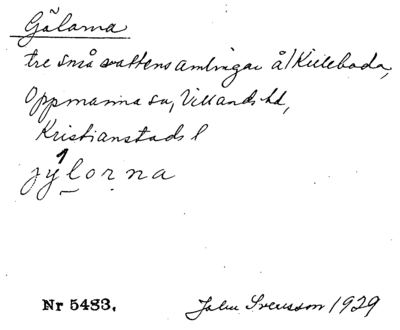 Gölarna
tre små vattensamlingar å/Killeboda,
Oppmanna sn, Villands hd,
Kristianstads l
jylorna
Nr 5483. John Svensson 1929